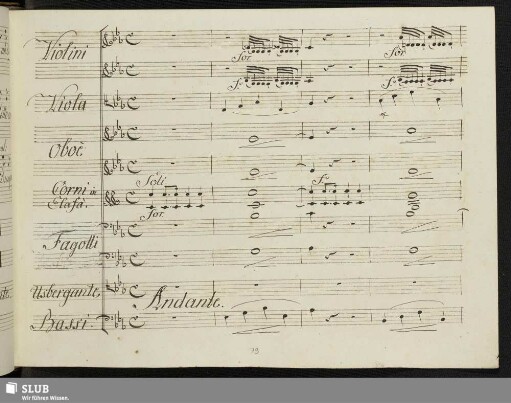 Violini
for for
f: f:
Viola
Oboe
Soli f:
Corni in
Elafà.
for
Fagotti
Usbergante,
Andante.
Bassi.
SLUB
Wir führen Wissen.